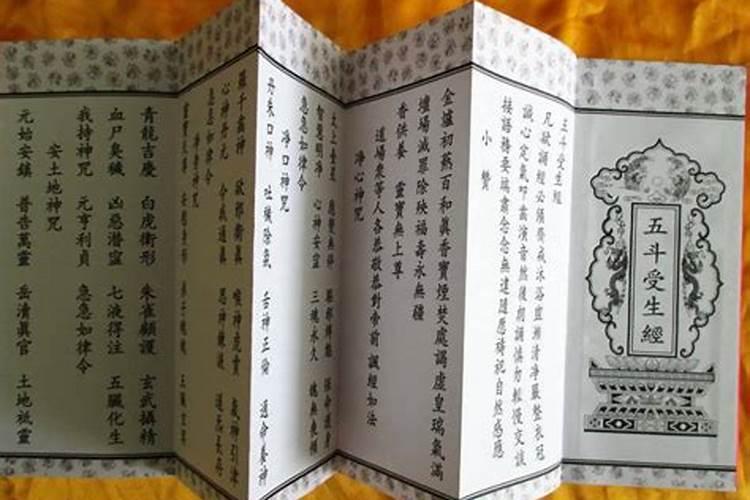 五斗受生經
五斗受生經
凡欲誦經必須齋戒沐浴盥漱清淨嚴整衣冠
誠心定氣叩齒演音然後朗誦慎勿輕慢交談
接語務要端肅念念無違隨愿禱祀自然感應
小贊
金爐初爇百和真香寶煙焚處謁虛皇瑞氣滿
壇場滅罪除殃福壽永無疆
香供養 靈寶無上尊
道場眾等人各恭敬恭對帝前 誦經如法
淨心神咒
太上台星 應變無停 驅邪縛魅 保命護身
智慧明淨 心神安寧 三魂永久 魄無喪傾
急急如律令
淨口神咒
丹朱口神 吐穢除氛 舌神正倫 通命養神
羅千齒神 卻邪衛真 喉神虎賁 氣神引津
心神丹元 令我通真 思神鍊液 道炁長存
急急如律令
淨身神咒
靈寶天尊 安慰身形 弟子魂魄 五臟玄冥
青龍吉慶 白虎衛形 朱雀顧護 玄武攝精
血尸臭穢 凶惡潛窪 七液得注 五臟化生
我持神咒 元亨利貞 急急如律令
安土地神咒
元始安鎮 普告萬靈 岳瀆真官 土地祗靈